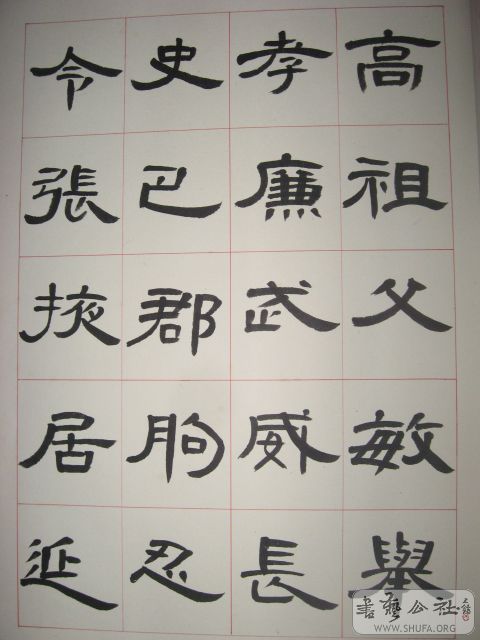 高祖父敏舉
孝廉武威長
史巴郡朐忍
令張掖居延
書藝公社
WWW.SHUFA.ORG